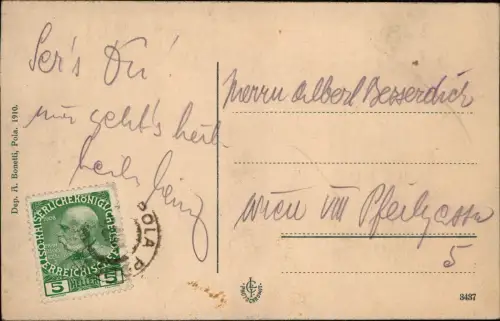 Ser's Du!
mir geht's heil
heil
Dep. A. Bonetti, Pola. 1910.
KAISERLICHE KÖNIGLICHE ÖSTERREICHISCHE
5 HELLER 5
POLA
Herrn Albert Besserdich
Wien VIII Pfeilgasse
5
3437